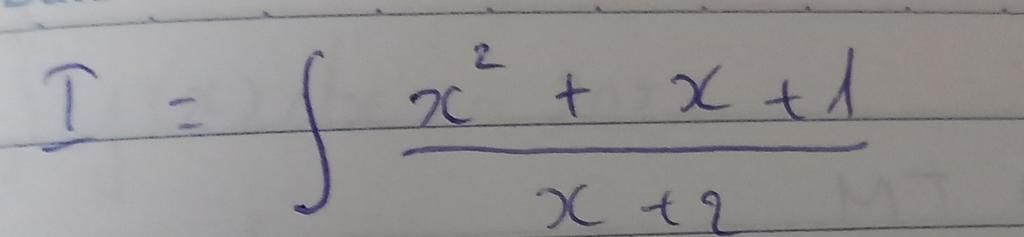 I = ∫ x² + x + 1 / x + 2